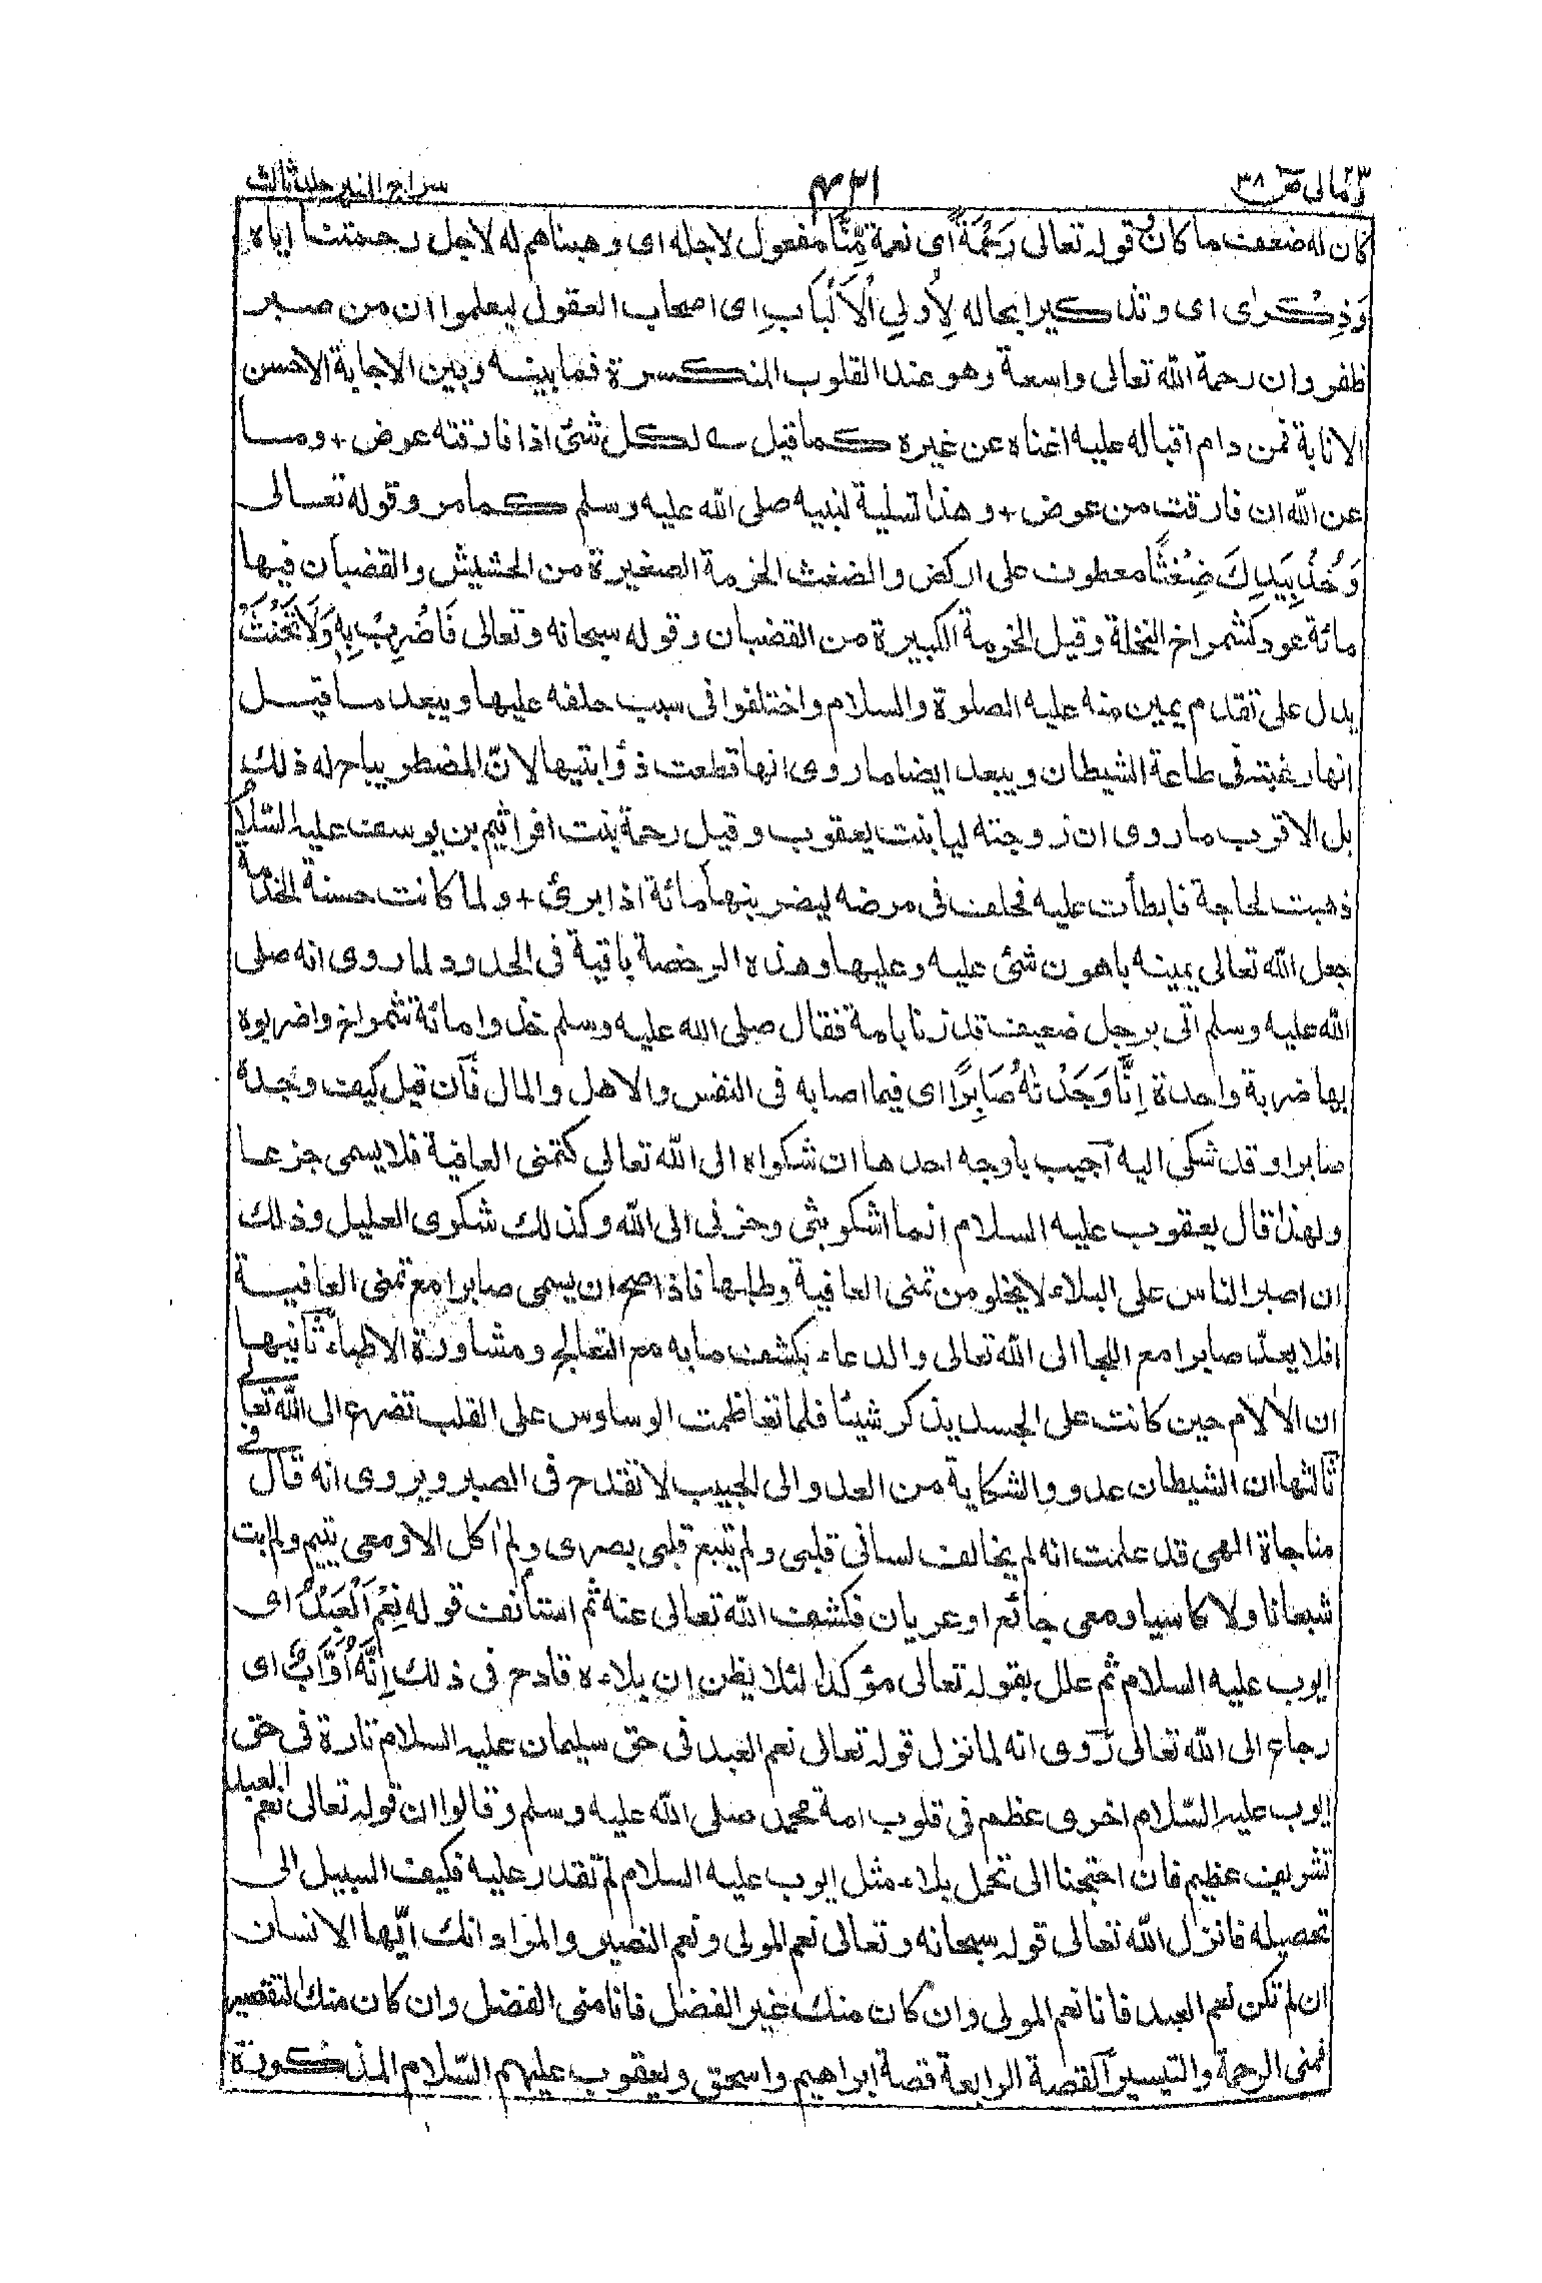 ومالی ۲۳ ص ۳۸ ۴۳۱ سراج المنير جلد ثالث
كان له ضعف ما كان وقوله تعالى رَحْمَةً اى نعمة مِّنَّا مفعول لاجله اى وهبناهم له لاجل رحمتنا اياه
وَذِكْرٰى اى وتذكيرا بحاله لِأُولِي الْأَلْبَابِ اى اصحاب العقول ليعلموا ان من صبر
ظفر وان رحمة الله تعالى واسعة وهو عند القلوب المنكسرة فما بينه وبين الاجابة الاحسن
الانابة فمن دام اقباله عليه اغناه عن غيره كما قيل ؎ لكل شئ اذا فارقته عوض + وما
عن الله ان فارقت من عوض + وهذا تسلية لنبيه صلى الله عليه وسلم كما مر وقوله تعالى
وَخُذْ بِيَدِكَ ضِغْثًا معطوف على اركض والضغث الحزمة الصغيرة من الحشيش والقضبان فيها
مائة عود كشمراخ النخلة وقيل الحزمة الكبيرة من القضبان وقوله سبحانه وتعالى فَاضْرِبْ بِهٖ وَلَا تَحْنَثْ
يدل على تقدم يمين منه عليه الصلوة والسلام واختلفوا فى سبب حلفه عليها ويبعد ما قيل
انها رغبته فى طاعة الشيطان ويبعد ايضا ما روى انها قطعت ذؤابتيها لانّ المضطر يباح له ذلك
بل الاقرب ما روى ان زوجته ليا بنت يعقوب وقيل رحمة بنت افراثيم بن يوسف عليه السّلام
ذهبت لحاجة فابطأت عليه فحلف فى مرضه ليضربنها مائة اذا برئ + ولما كانت حسنة الخدمة
جعل الله تعالى يمينه باهون شئ عليه وعليها وهذه الرخصة باقية فى الحدود ولما روى انه صلى
الله عليه وسلم اتى برجل ضعيف قد زنا بامة فقال صلى الله عليه وسلم خذوا مائة شمراخ واضربوه
بها ضربة واحدة اِنَّا وَجَدْنٰهُ صَابِرًا اى فيما اصابه فى النفس والاهل والمال فان قيل كيف وجده
صابرا وقد شكى اليه اجيب باوجه احدها ان شكواه الى الله تعالى كتمنى العافية فلا يسمى جزعا
ولهذا قال يعقوب عليه السلام انما اشكو بثى وحزنى الى الله وكذلك شكوى العليل وذلك
ان اصبر الناس على البلاء لا يخلو من تمنى العافية وطلبها فاذا صح ان يسمى صابرا مع تمنى العافية
افلا يعدّ صابرا مع اللجا الى الله تعالى والدعاء بكشف ما به مع التعالج ومشاورة الاطباء ثانيها
ان الالام حين كانت على الجسد لم يذكر شيئا فلما تعاظمت الوساوس على القلب تضرع الى الله تعالى
ثالثها ان الشيطان عدو والشكاية من العدو الى الحبيب لا تقدح فى الصبر ويروى انه قال فى
مناجاة الهى قد علمت انه لم يخالف لسانى قلبى ولم يتبع قلبى بصرى ولم اكل الا ومعى يتيم ولم ابت
شبعانا ولا كاسيا ومعى جائع او عريان فكشف الله تعالى عنه ثم استأنف قوله نِعْمَ الْعَبْدُ اى
ايوب عليه السلام ثم علل بقوله تعالى مؤكدا لئلا يظن ان بلاءه قادح فى ذلك اِنَّهٗ اَوَّابٌ اى
رجاع الى الله تعالى روى انه لما نزل قوله تعالى نعم العبد فى حق سليمان عليه السلام تارة فى حق
ايوب عليه السّلام اخرى عظم فى قلوب امة محمد صلى الله عليه وسلم وقالوا ان قوله تعالى نعم العبد
تشريف عظيم فان احتجنا الى تحمل بلاء مثل ايوب عليه السلام لم نقدر عليه فكيف السبيل الى
تحصيله فانزل الله تعالى قوله سبحانه وتعالى نعم المولى ونعم النصير والمراد انك ايّها الانسان
ان لم تكن نعم العبد فانا نعم المولى وان كان منك غير الفضل فانا منى الفضل وان كان منك التقصير
فمنى الرحمة والتيسير القصة الرابعة قصة ابراهيم واسحق ويعقوب عليهم السّلام المذكورة